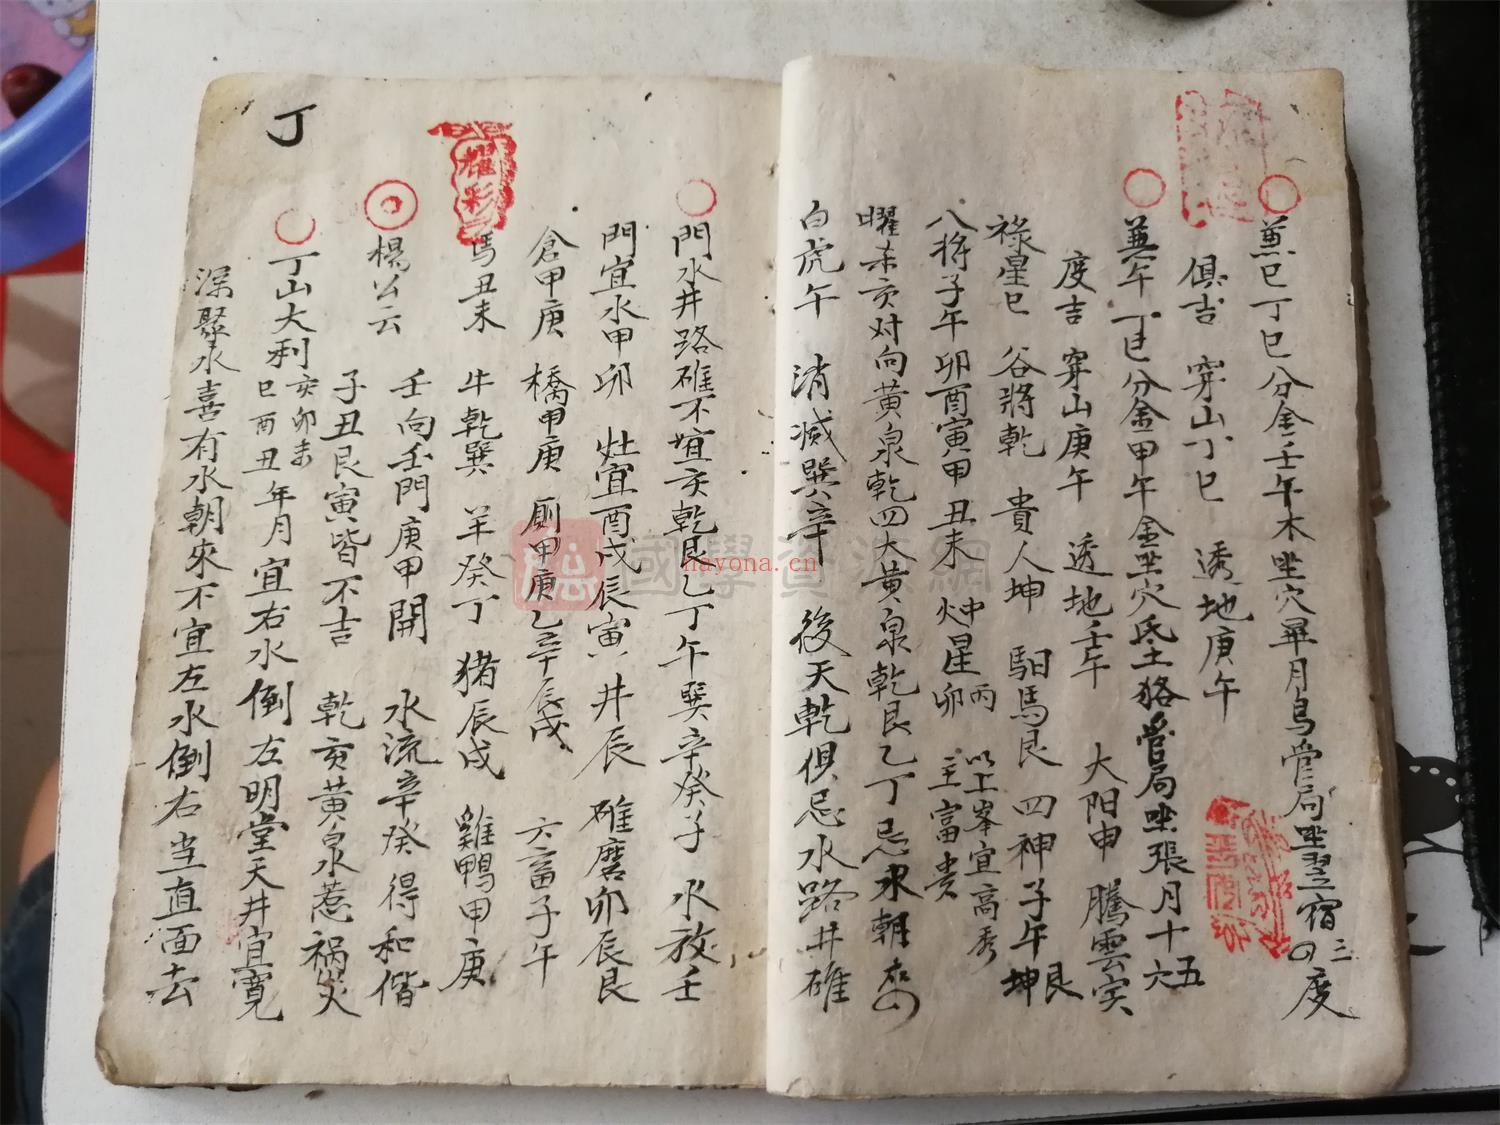 兼巳丁巳分金壬午木坐穴畢月烏管局坐翌宿三四度
俱吉 穿山丁巳 透地庚午
兼午丁巳分金甲午金坐穴氐土狢管局坐張月十五六
度吉 穿山庚午 透地壬午 太陽申 騰雲宾
祿星巳 谷將乾 貴人坤 馹馬艮 四神子午坤艮
八將子午卯酉寅甲丑未 炉星丙卯 以上峯宜高秀主富貴
曜未亥对向黃泉乾四大黃泉乾艮乙丁忌水朝
白虎午 消滅巽辛 後天乾俱忌水路井碓
門水井路碓不宜亥乾艮乙丁午巽辛癸子 水放壬
門宜水甲卯 灶宜酉戌辰寅 井辰 碓磨卯辰艮
倉甲庚 橋甲庚 厠甲庚乙辛辰戌 六畜子午
馬丑未 牛乾巽 羊癸丁 猪辰戌 雞鴨甲庚
楊公云 壬向壬門庚甲開 水流辛癸得和偕
子丑艮寅皆不吉 乾亥黃泉水惹禍災
丁山大利亥卯未巳酉丑年月宜右水倒左明堂天井宜寬
深聚水喜有水朝來不宜左水倒右当直面去
丁
耀彩
國學資源網
nayona.cn